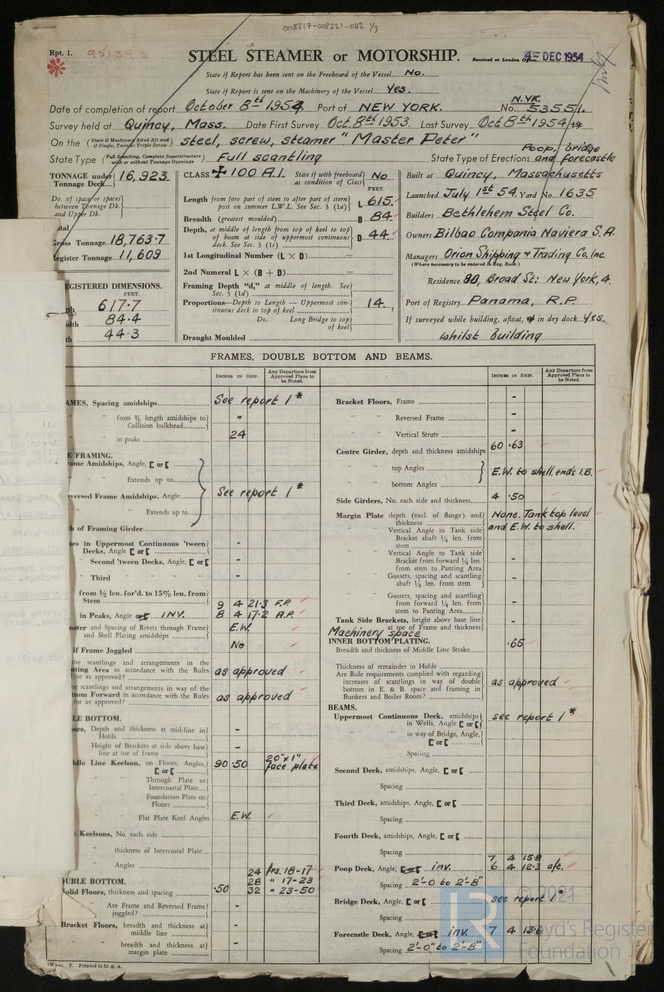 008217-008221-0112 1/3
Rpt. 1. 951393
STEEL STEAMER or MOTORSHIP.
Received at London
DEC 1954
State if Report has been sent on the Freeboard of the Vessel No.
State if Report is sent on the Machinery of the Vessel Yes.
Date of completion of report October 8th 1954 Port of NEW YORK. N.YK. No. 53551
Survey held at Quincy, Mass. Date First Survey Oct. 8th 1953. Last Survey Oct 8th 1954
On the (State if Machinery fitted Aft and if Single, Twin or Triple Screw) steel, screw, steamer "Master Peter"
State Type (Full Scantling, Complete Superstructure with or without Tonnage Openings) Full scantling State Type of Erections Poop, bridge and forecastle
TONNAGE under Tonnage Deck 16,923
Do. of space or spaces between Tonnage Dk. and Upper Dk.
Total
Gross Tonnage 18,763.7
Register Tonnage 11,609
REGISTERED DIMENSIONS.
FEET.
617.7
84.4
44.3
CLASS ✠ 100 A.1. State if with freeboard as condition of Class No
FEET.
Length from fore part of stem to after part of stern post on summer L.W.L. See Sec. 3 (1a) L 615
Breadth (greatest moulded) B 84
Depth, at middle of length from top of keel to top of beam at side of uppermost continuous deck. See Sec. 3 (1c) D 44
1st Longitudinal Number (L × D)
2nd Numeral L × (B + D)
Framing Depth "d," at middle of length. See Sec. 3 (1d)
Proportions—Depth to Length — Uppermost continuous deck to top of keel 14
Do. Long Bridge to top of keel
Draught Moulded
Built at Quincy, Massachusetts
Launched July 1st 54. Yard No. 1635
Builders Bethlehem Steel Co.
Owners Bilbao Compania Naviera S.A.
Managers Orion Shipping & Trading Co. Inc
(Where necessary to be entered in Reg. Book.)
Residence 80, Broad St: New York, 4.
Port of Registry Panama, R.P.
If surveyed while building, afloat, or in dry dock Yes.
whilst building
FRAMES, DOUBLE BOTTOM AND BEAMS.
INCHES IN SHIP. Any Departure from Approved Plans to be Noted.
INCHES IN SHIP. Any Departure from Approved Plans to be Noted.
AMES, Spacing amidships See report 1*
from 3/5 length amidships to Collision bulkhead
in peaks 24
E FRAMING.
rame Amidships, Angle, [ or [
Extends up to
versed Frame Amidships, Angle See report 1*
Extends up to
h of Framing Girder
es in Uppermost Continuous 'tween Decks, Angle [ or [ -
Second 'tween Decks, Angle [ or [ -
Third -
from 1/5 len. for'd. to 15% len. from Stem 9 4 21.3 F.P.
in Peaks, Angle or INV. 8 4 17.2 A.P.
meter and Spacing of Rivets through Frame and Shell Plating amidships E.W.
if Frame Joggled No
the scantlings and arrangements in the nting Area in accordance with the Rules /or as approved? as approved
the scantlings and arrangements in way of the ottom Forward in accordance with the Rules /or as approved? as approved
LE BOTTOM.
ors, Depth and thickness at mid-line in Holds -
Height of Brackets at side above base line at toe of frame -
ddle Line Keelson, on Floors, Angles, [ or [ 90 .50 20"x1" face plate
Through Plate or Intercoastal Plate
Foundation Plate on Floors
Flat Plate Keel Angles E.W.
Keelsons, No. each side -
thickness of Intercostal Plate -
Angles -
OUBLE BOTTOM.
24 frs. 18-17
28 " 17-23
Solid Floors, thickness and spacing .50 32 " 23-50
Are Frame and Reversed Frame joggled? -
Bracket Floors, breadth and thickness at middle line -
breadth and thickness at margin plate -
Printed in U.S.A.
Bracket Floors, Frame -
Reversed Frame -
Vertical Struts -
Centre Girder, depth and thickness amidships 60 .63
top Angles E.W. to shell, ends I.B.
bottom Angles
Side Girders, No. each side and thickness 4 .50
Margin Plate depth (excl. of flange) and thickness None. Tank top level and E.W. to shell.
Vertical Angle to Tank side Bracket abaft 1/4 len. from stem -
Vertical Angle to Tank side Bracket from forward 1/4 len. from stem to Panting Area -
Gussets, spacing and scantling abaft 1/4 len. from stem -
Gussets, spacing and scantling forward of 1/4 len. from stem to Panting Area -
Tank Side Brackets, height above base line at toe of Frame and thickness -
Machinery space
INNER BOTTOM PLATING.
Breadth and thickness of Middle Line Strake .65
Thickness of remainder in Holds -
Are Rule requirements complied with regarding increases of scantlings in way of double bottom in E. & B. space and framing in Bunkers and Boiler Room? as approved
BEAMS.
Uppermost Continuous Deck, amidships in Wells, Angle [ or [ see report 1*
in way of Bridge, Angle [ or [
Spacing
Second Deck, amidships, Angle, [ or [ -
Spacing -
Third Deck, amidships, Angle, [ or [ -
Spacing -
Fourth Deck, amidships, Angle, [ or [ -
Spacing
7 4 15.8
Poop Deck, Angle, [ or [ inv. 6 4 12.3 aft.
Spacing 2'-0 to 2'-8"
Bridge Deck, Angle, [ or [ see report 1*
Spacing
Forecastle Deck, Angle, [ or [ inv. 7 4 13.6
Spacing 2'-0" to 2'-8"
© 2021
LR
Lloyd's Register
Foundation